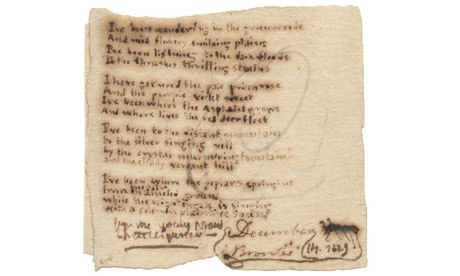 I've been wandering in the greenwoods
And mid flowery smiling plains
I've been listning to the dark floods
To the thrushes thrilling strains
I have gathered the pale primrose
And the purple violet sweet
I've been where the Asphodel grows
And where lives the red deer fleet
I've been to the distant mountain
To the silver singing rill
by the crystal murmering fountain
and the shady verdant hill
I've been where the poplar is springing
From the ground
while the is singing
With a solemn plaintive sound
December
Brontë